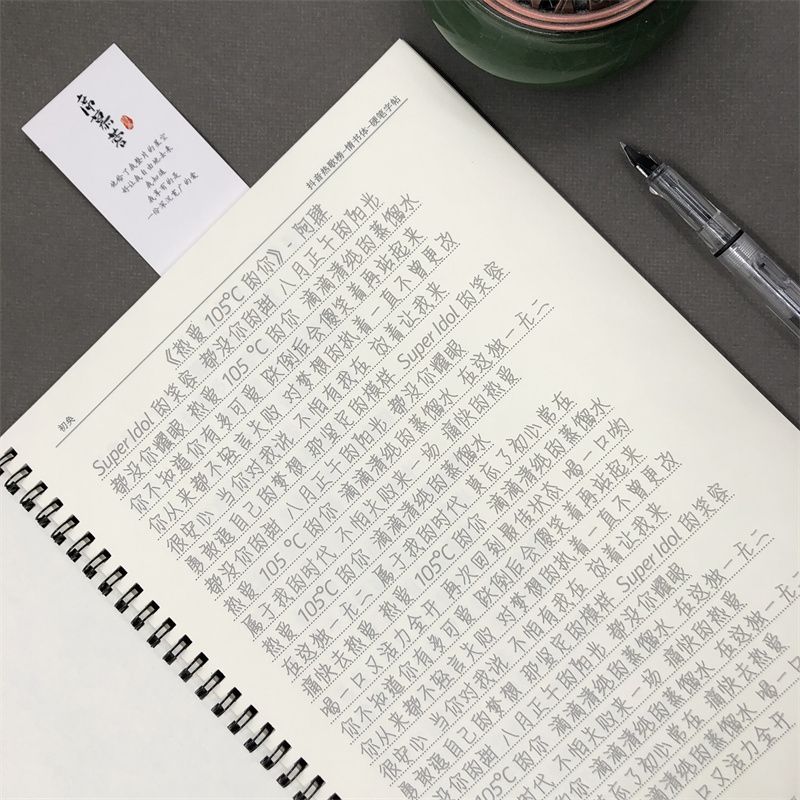 她给了我整片的星空
好让我自由地去来
我知道
我享有的是
一份深沉宽广的爱
抖音热歌榜-情书体-硬笔字帖
初奂
《热爱 105°C 的你》- 阿肆
Super Idol 的笑容 都没你的甜 八月正午的阳光
都没你耀眼 热爱 105 °C 的你 滴滴清纯的蒸馏水
你不知道你有多可爱 跌倒后会傻笑着再站起来
你从来都不轻言失败 对梦想的执着一直不曾更改
很安心 当你对我说 不怕有我在 放着让我来
勇敢追自己的梦想 那坚定的模样 Super Idol 的笑容
都没你的甜 八月正午的阳光 都没你耀眼
热爱 105 °C 的你 滴滴清纯的蒸馏水 在这独一无二
属于我的时代 不怕失败来一场 痛快的热爱
热爱 105°C 的你 滴滴清纯的蒸馏水
在这独一无二 属于我的时代 莫忘了初心常在
痛快去热爱 热爱 105°C 的你 滴滴清纯的蒸馏水
喝一口又活力全开 再次回到最佳状态 喝一口哟
你不知道你有多可爱 跌倒后会傻笑着再站起来
你从来都不轻言失败 对梦想的执着一直不曾更改
很安心 当你对我说 不怕有我在 放着让我来
勇敢追自己的梦想 那坚定的模样 Super Idol 的笑容
没你的甜 八月正午的阳光 都没你耀眼
°C 的你 滴滴清纯的蒸馏水 在这独一无二
时代 不怕失败来一场 痛快的热爱
滴滴清纯的蒸馏水 在这独一无
莫忘了初心常在 痛快去热爱
滴滴清纯的蒸馏水 喝一
又活力全开